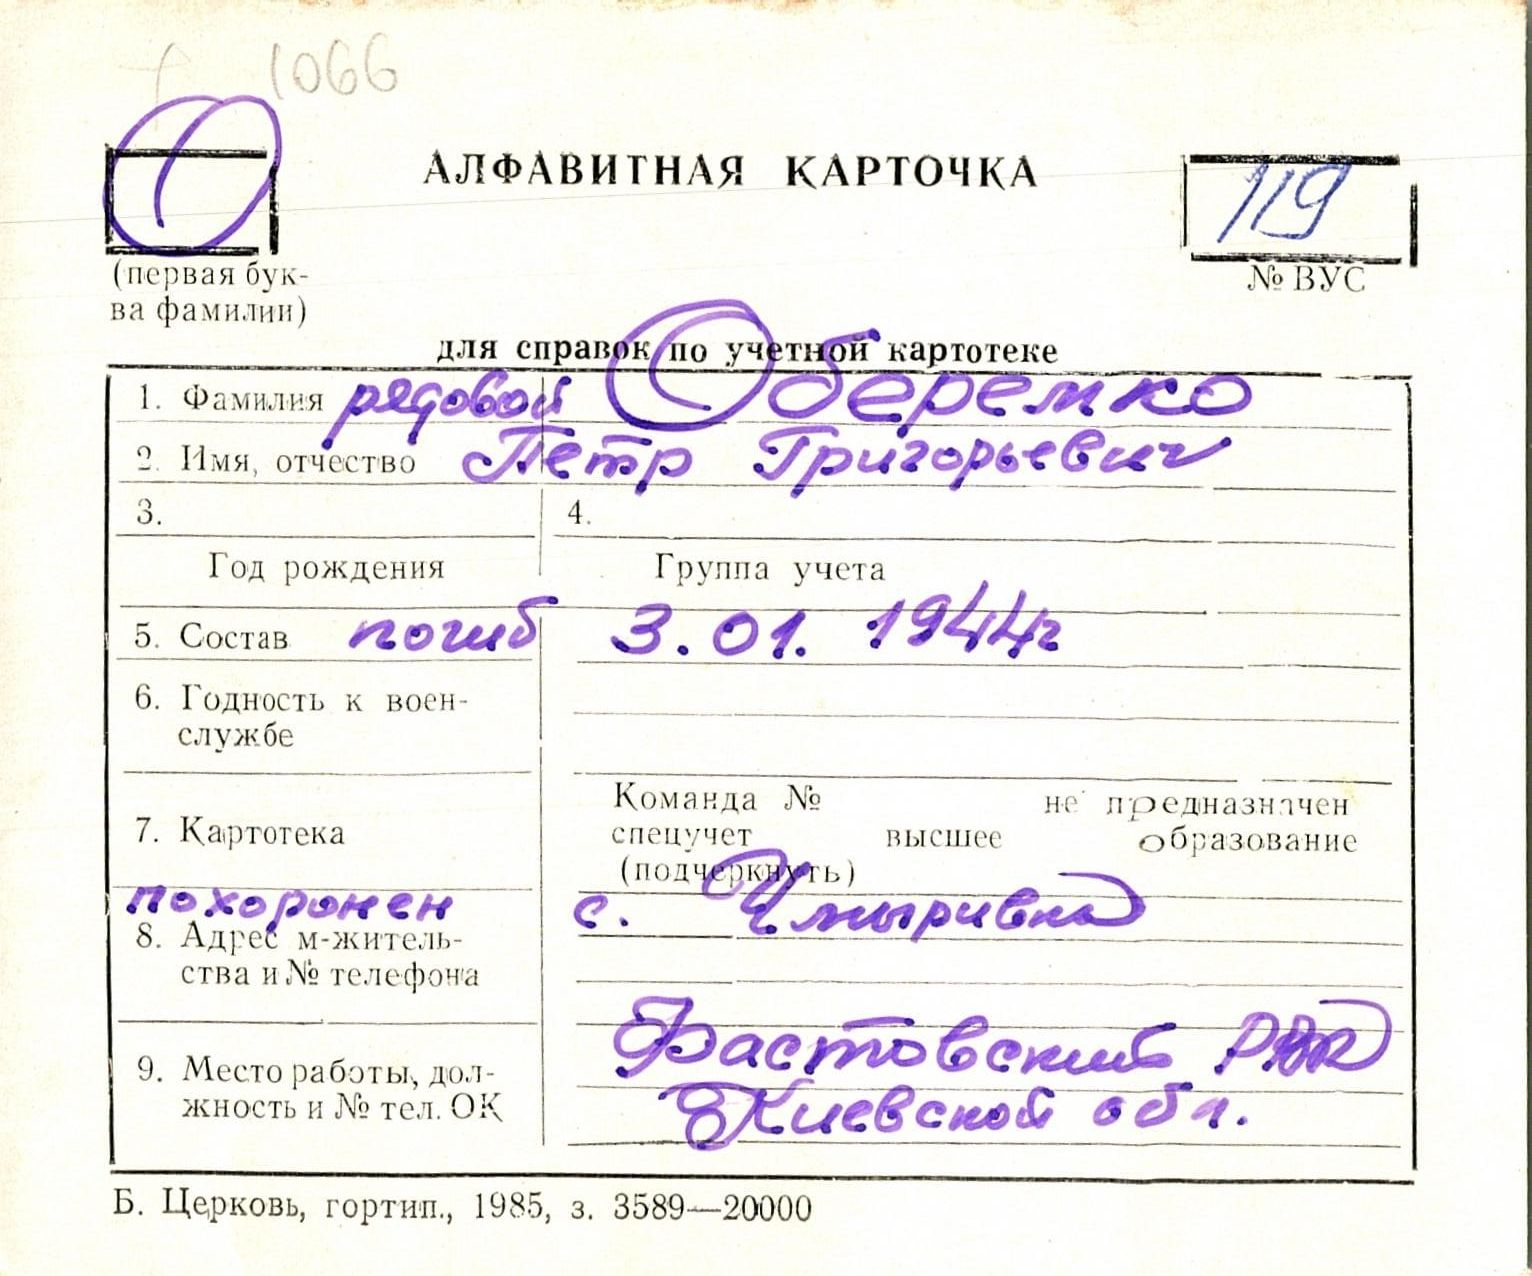 1066
О
АЛФАВИТНАЯ КАРТОЧКА
119
(первая бук-
ва фамилии)
№ ВУС
для справок по учетной картотеке
1. Фамилия рядовой Оберемко
2. Имя, отчество Петр Григорьевич
3. 4.
Год рождения Группа учета
5. Состав погиб 3.01.1944г
6. Годность к воен-
службе
7. Картотека
Команда № не предназначен
спецучет высшее образование
(подчеркнуть)
похоронен с. Чмыривка
8. Адрес м-житель-
ства и № телефона
Фастовский РВК
Киевской обл.
9. Место работы, дол-
жность и № тел. ОК
Б. Церковь, гортип., 1985, з. 3589—20000